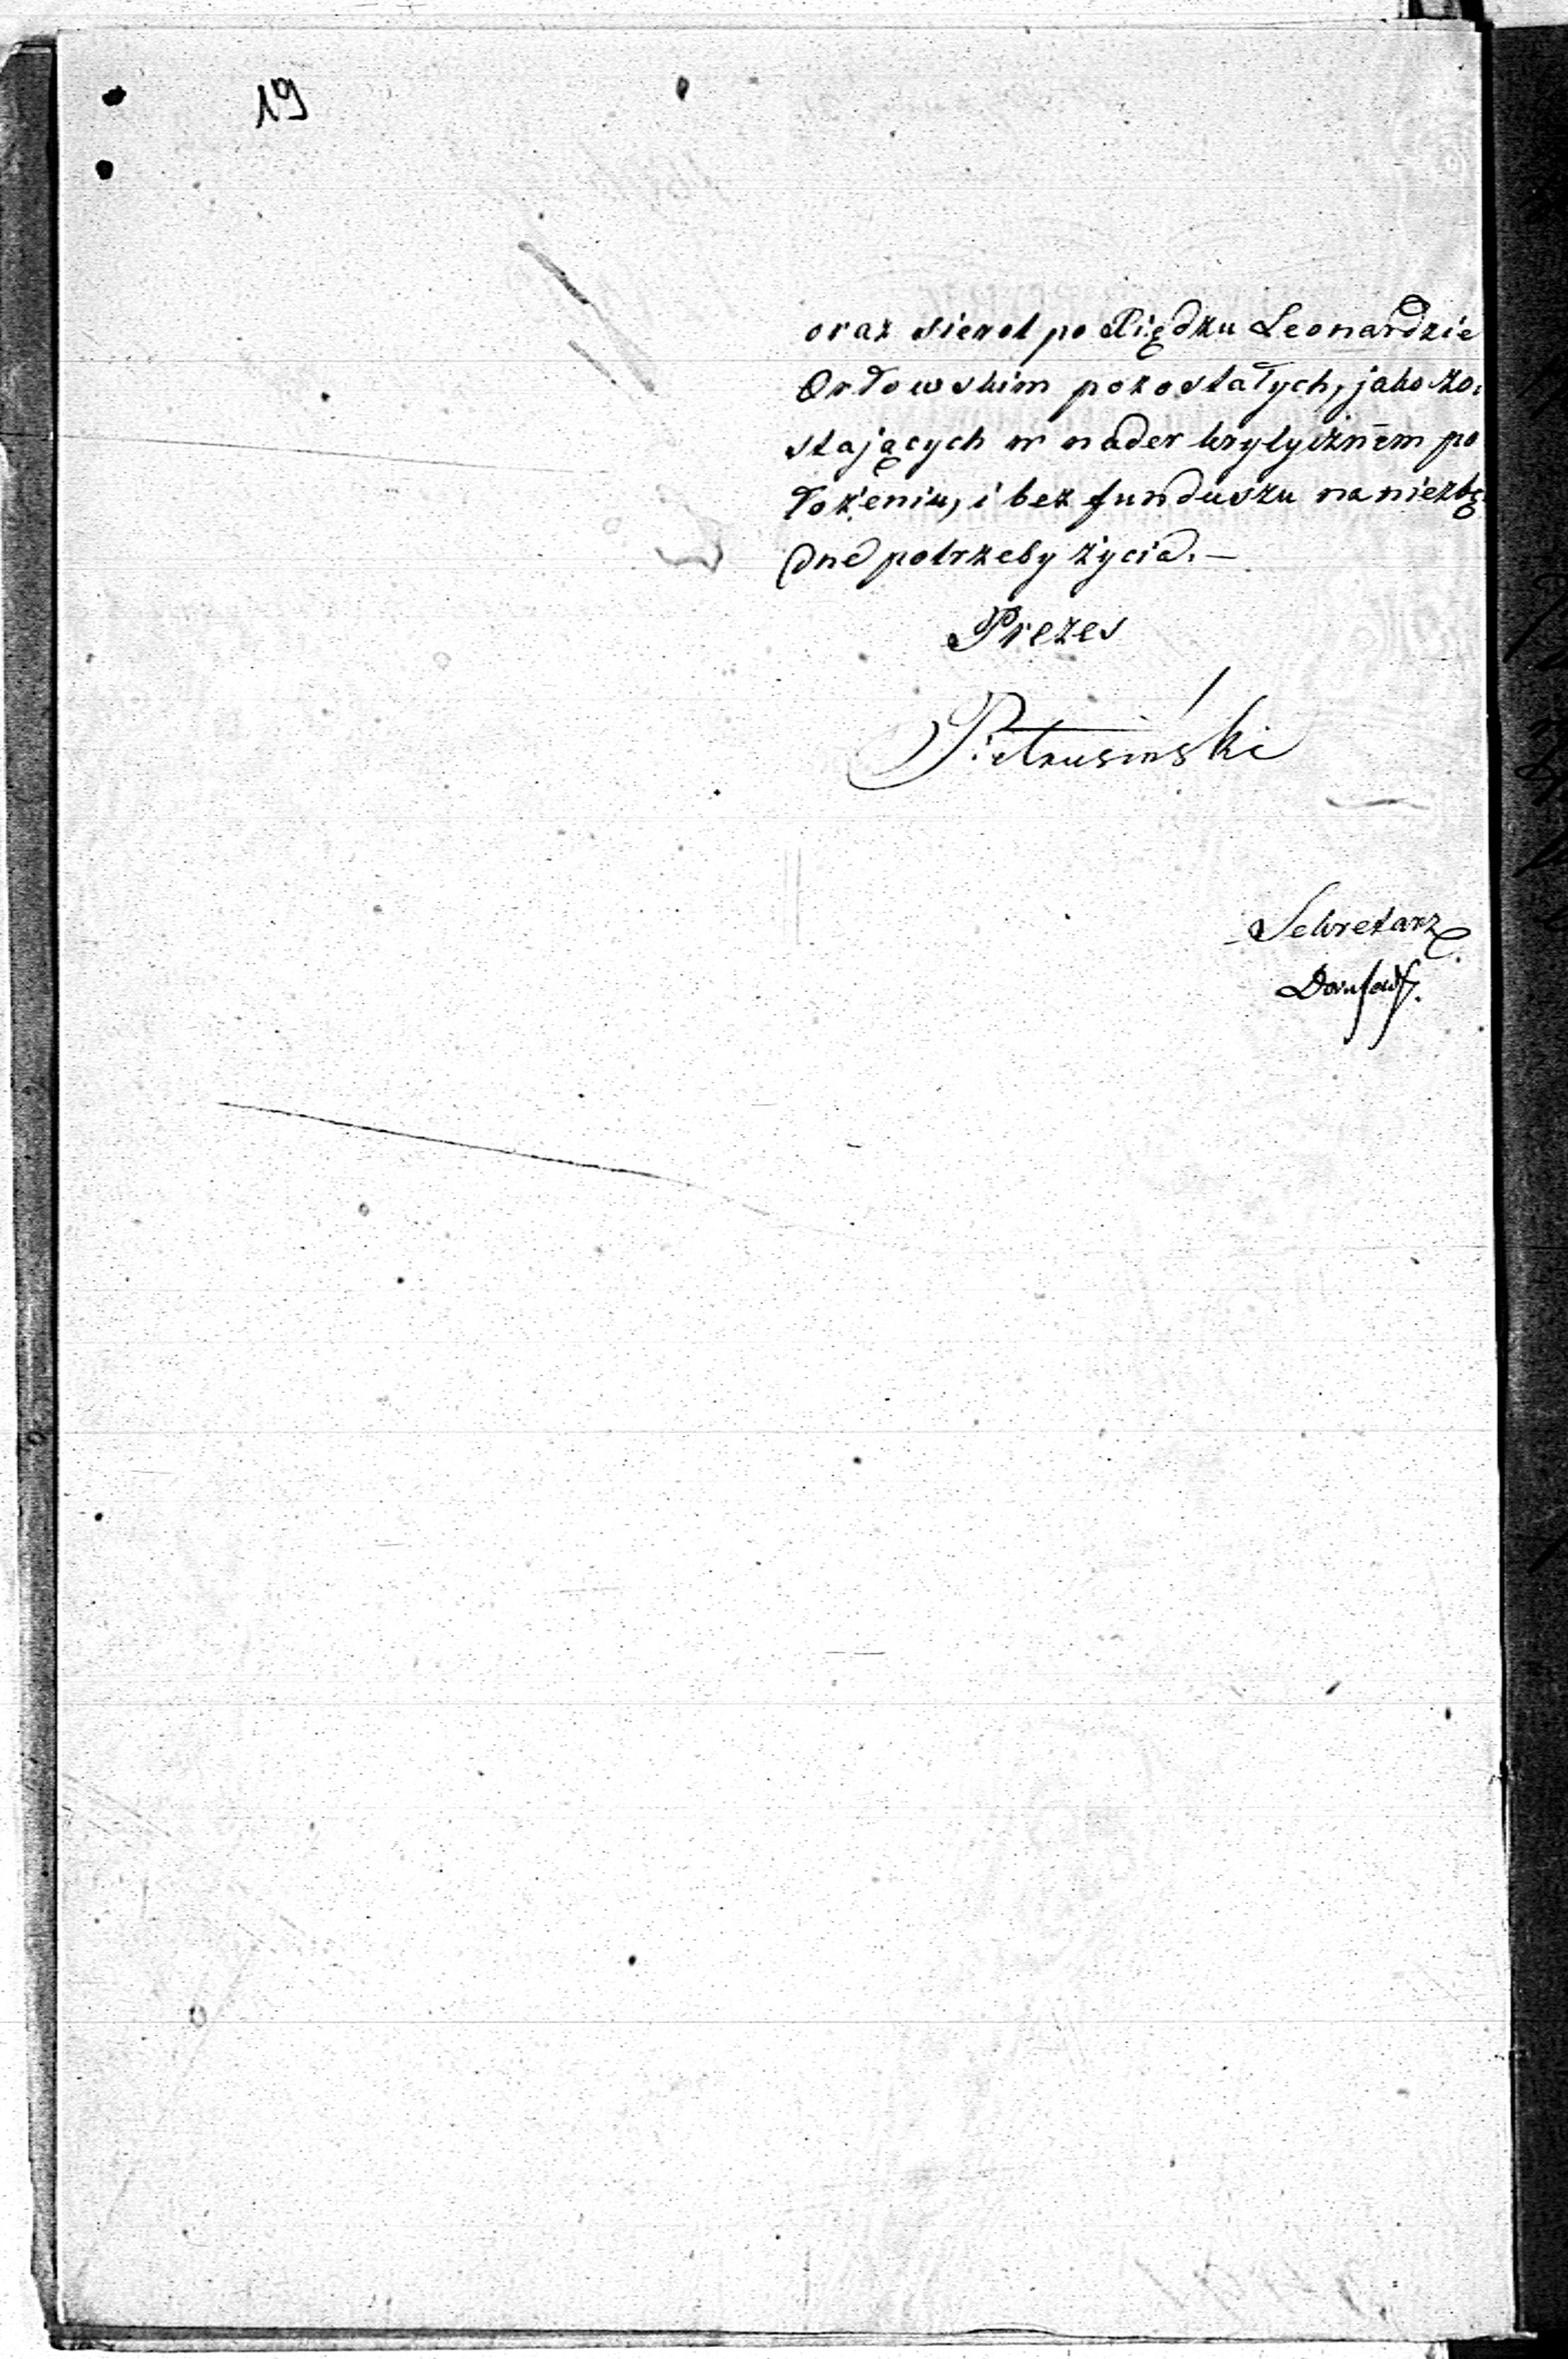 19
oraz sierot po Xiędzu Leonardzie
Orłowskim pozostałych, jako zo-
stających w nader krytycznem po
łożeniu, i bez funduszu na niezbę
dne potrzeby życia. —
Prezes
Pietrusiński
Sekretarz